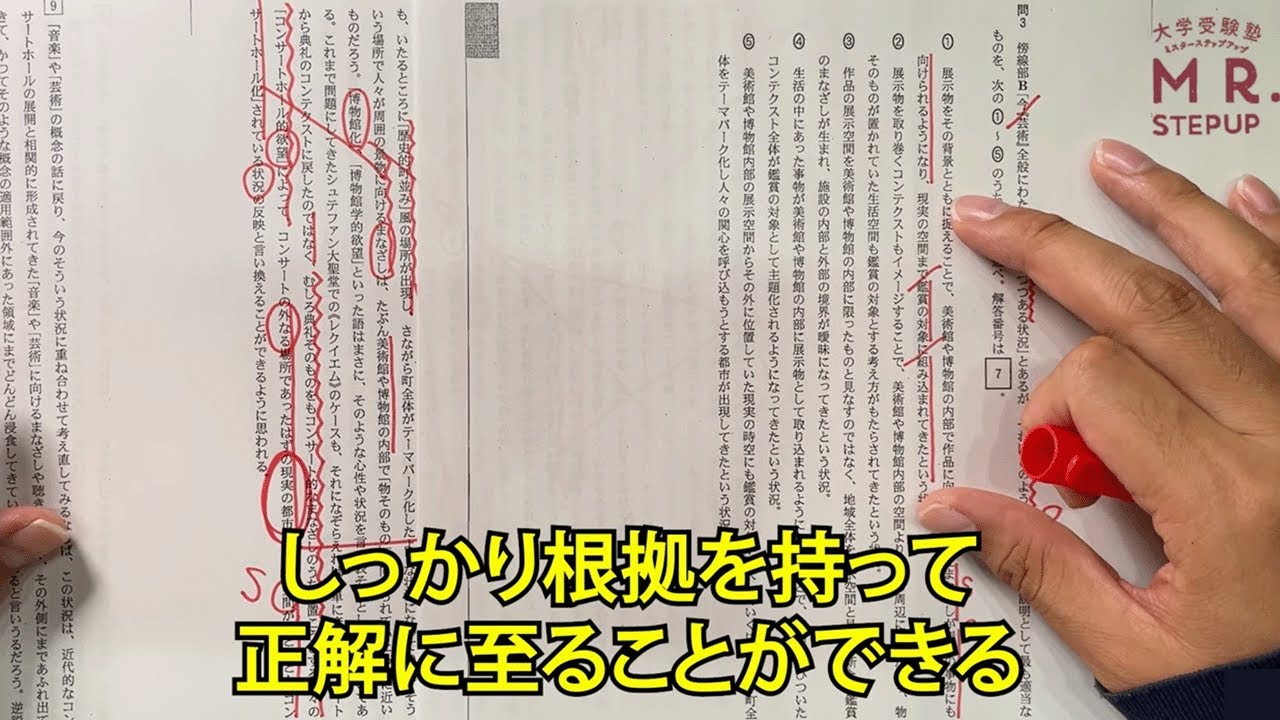 大学受験塾
ミスターステップアップ
MR.
STEPUP
問3 傍線部B「今『芸術』全般にわた
つある状況」とあるが
ものを、次の①〜⑤のうち
べ。解答番号は 7 。
① 展示物をその背景とともに捉えることで、美術館や博物館の内部で作品に向
向けられるようになり、現実の空間まで鑑賞の対象に組み込まれてきたという状
② 展示物を取り巻くコンテクストもイメージすることで、美術館や博物館内部の空間より
周辺に
そのものが置かれていた生活空間も鑑賞の対象とする考え方がもたらされてきたという状
③ 作品の展示空間を美術館や博物館の内部に限ったものと見なすのではなく、地域全体
空間と見
のまなざしが生まれ、施設の内部と外部の境界が曖昧になってきたという状況。
④ 生活の中にあった事物が美術館や博物館の内部に展示物として取り込まれるように
コンテクスト全体が鑑賞の対象として主題化されるようになってきたという状況。
⑤ 美術館や博物館内部の展示空間からその外に位置していた現実の時空にも鑑賞の対
町全
体をテーマパーク化し人々の関心を呼び込もうとする都市が出現してきたという状況
も、いたるところに「歴史的町並み」風の場所が出現し、さながら町全体がテーマパーク化した
いう場所で人々が周囲の景物に向けるまなざしは、たぶん美術館や博物館の内部で「物そのもの
に近い
ものだろう。「博物館化」、「博物館学的欲望」といった語はまさに、そのような心性や状況を言
る。これまで問題にしてきたシュテファン大聖堂での《レクイエム》のケースも、それになぞらえ
から典礼のコンテクストに戻したのではなく、むしろ典礼そのものをもコンサート的なまなざしの
「コンサートホール的欲望」によって、コンサートの外なる場所であったはずの現実の都市
間が
サートホール化」されている状況の反映と言い換えることができるように思われる。
9
「音楽」や「芸術」の概念の話に戻り、今のそういう状況に重ね合わせて考え直してみるな
ば、この状況は、近代的なコン
サートホールの展開と相関的に形成されてきた「音楽」や「芸術」に向けるまなざしや聴き
が、その外側にまであふれ出て
きて、かつてそのような概念の適用範囲外にあった領域にまでどんどん浸食してきてい
ると言いうるだろう。逆説
しっかり根拠を持って
正解に至ることができる